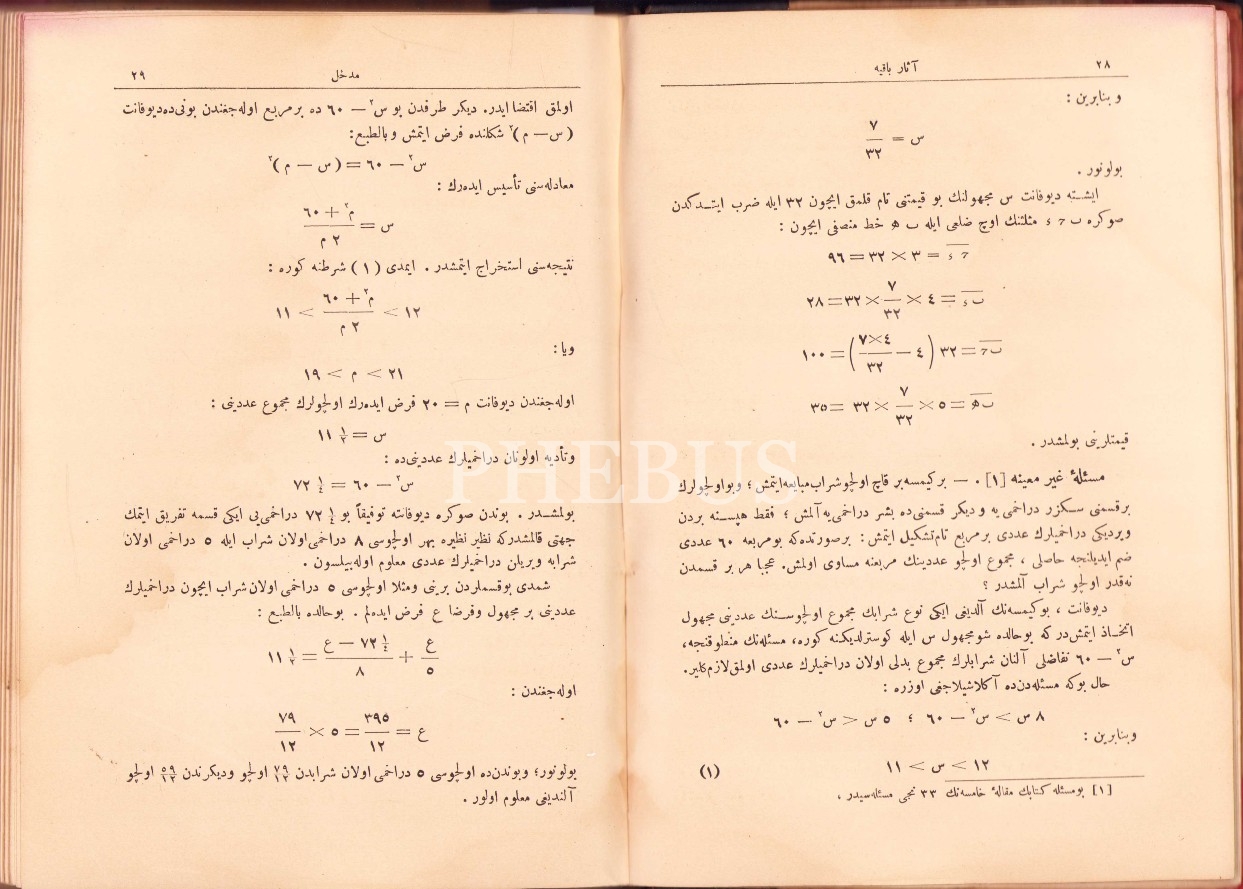 ٢٨
آثار باقیه
و بنابرین :
س = ٧/٣٢
بولونور .
ایشته دیوفانت س مجهولنك بو قیمتنی تام قلمق ایچون ٣٢ ایله ضرب ایتدكدن
صوكره ب ح ء مثلثنك اوچ ضلعی ایله ب ﻫ خط منصفی ایچون :
ح ء = ٣ × ٣٢ = ٩٦
ب ء = ٤ × ٧/٣٢ × ٣٢ = ٢٨
ب ح = ٣٢ (٤ − ٤×٧/٣٢) = ١٠٠
ب ﻫ = ٥ × ٧/٣٢ × ٣٢ = ٣٥
قیمتلرینی بولمشدر .
مسئلهٔ غیر معینه [١] . — بركیمسه بر قاچ اولچو شراب مبایعه ایتمش ؛ و بو اولچولرك
برقسمنی سكزر دراخمی یه و دیكر قسمنی ده بشر دراخمی یه آلمش ؛ فقط هپسنه بردن
ویردیكی دراخمیلرك عددی برمربع تام تشكیل ایتمش : برصورتده كه بومربعه ٦٠ عددی
ضم ایدیلنجه حاصلی ، مجموع اولچو عددینك مربعنه مساوی اولمش. عجبا هر بر قسمدن
نه قدر اولچو شراب آلمشدر ؟
دیوفانت ، بوكیمسه نك آلدیغی ایكی نوع شرابك مجموع اولچوسنك عددینی مجهول
اتخاذ ایتمش در كه بوحالده شومجهول س ایله كوسترلدیكنه كوره، مسئله نك منطوقنجه،
س٢ — ٦٠ تفاضلی آلنان شرابلرك مجموع بدلی اولان دراخمیلرك عددی اولمق لازم كلیر.
حال بوكه مسئله دن ده آكلاشیلاجغی اوزره :
٨ س > س٢ — ٦٠ ؛ ٥ س < س٢ — ٦٠
وبنابرین :
١٢ > س > ١١ (١)
[١] بومسئله كتابك مقالهٔ خامسه نك ٣٣ نجی مسئله سیدر .
مدخل
٢٩
اولمق اقتضا ایدر. دیكر طرفدن بو س٢ — ٦٠ ده برمربع اوله جغندن بونی ده دیوفانت
(س — م)٢ شكلنده فرض ایتمش و بالطبع:
س٢ — ٦٠ = (س — م)٢
معادله سنی تأسیس ایده رك :
س = م٢ + ٦٠ / ٢ م
نتیجه سنی استخراج ایتمشدر . ایمدی (١) شرطنه كوره :
١٢ > م٢ + ٦٠ / ٢ م > ١١
ویا:
٢١ > م > ١٩
اوله جغندن دیوفانت م = ٢٠ فرض ایده رك اولچولرك مجموع عددینی :
س = ١١ ١/٢
وتأدیه اولونان دراخمیلرك عددینی ده :
س٢ — ٦٠ = ٧٢ ١/٤
بولمشدر . بوندن صوكره دیوفانته توفیقاً بو ٧٢ ١/٤ دراخمی یی ایكی قسمه تفریق ایتمك
جهتی قالمشدركه نظیر نظیره بهر اولچوسی ٨ دراخمی اولان شراب ایله ٥ دراخمی اولان
شرابه ویریلن دراخمیلرك عددی معلوم اوله بیلسون .
شمدی بوقسملردن برینی ومثلا اولچوسی ٥ دراخمی اولان شراب ایچون دراخمیلرك
عددینی بر مجهول وفرضا ع فرض ایده لم . بوحالده بالطبع :
ع/٥ + ٧٢ ١/٤ — ع / ٨ = ١١ ١/٢
اوله جغندن :
ع = ٣٩٥/١٢ = ٥ × ٧٩/١٢
بولونور؛ وبوندن ده اولچوسی ٥ دراخمی اولان شرابدن ٧٩/١٢ اولچو ودیكرندن ٥٩/١٢ اولچو
آلندیغی معلوم اولور .
PHEBUS